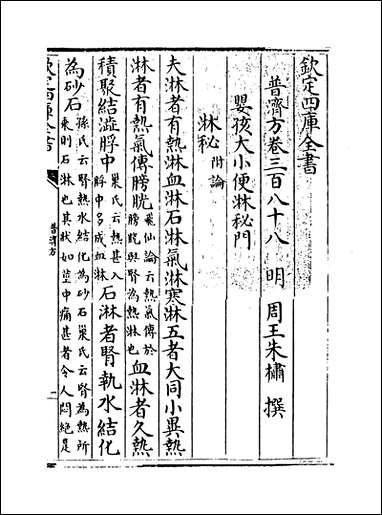 欽定四庫全書
普濟方卷三百八十八 明 周王朱橚 撰
嬰孩大小便淋秘門
淋秘 附論
夫淋者有熱淋血淋石淋氣淋寒淋五者大同小異熱
淋者有熱氣傳膀胱 飛仙論云熱氣傳於膀胱與腎為熱淋也 血淋者久熱
積聚結澁脬中 巢氏云熱甚入脬中多成血淋 石淋者腎執水結化
為砂石 孫氏云腎熱水結化為砂石巢氏云腎為熱所乘則石淋也其狀如莖中痛甚者令人悶絕是
欽定四庫全書 普濟方